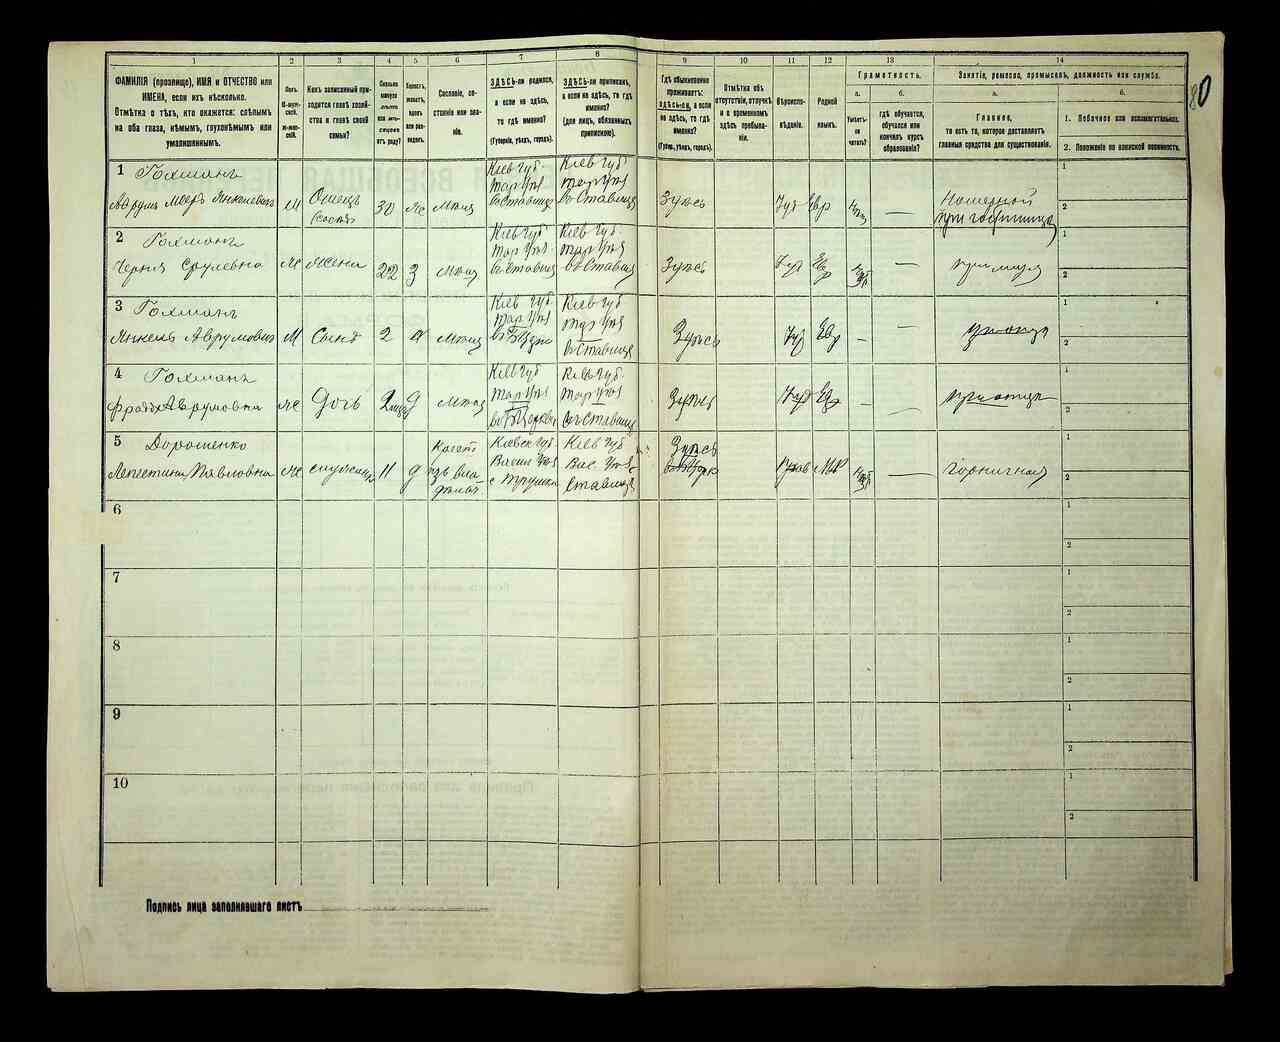 80
1
2
3
4
5
6
7
8
9
10
11
12
13
14
ФАМИЛІЯ (прозвище), ИМЯ и ОТЧЕСТВО или
ИМЕНА, если ихъ нѣсколько.
Отмѣтка о тѣхъ, кто окажется: слѣпымъ
на оба глаза, нѣмымъ, глухонѣмымъ или
умалишеннымъ.
Полъ.
М-муж-
ской.
Ж-жен-
скій.
Какъ записанный при-
ходится главѣ хозяй-
ства и главѣ своей
семьи?
Сколько
минуло
лѣтъ
или мѣ-
сяцевъ
отъ роду?
Холостъ,
женатъ,
вдовъ
или раз-
веденъ.
Сословіе, со-
стояніе или зва-
ніе.
ЗДѢСЬ-ли родился,
а если не здѣсь,
то гдѣ именно?
(Губернія, уѣздъ, городъ).
ЗДѢСЬ-ли приписанъ,
а если не здѣсь, то гдѣ
именно?
(для лицъ, обязанныхъ
припискою).
Гдѣ обыкновенно
проживаетъ:
ЗДѢСЬ-ли, а если
не здѣсь, то гдѣ
именно?
(Губер., уѣздъ, городъ).
Отмѣтка объ
отсутствіи, отлучкѣ
и о временномъ
здѣсь пребыва-
ніи.
Вѣроиспо-
вѣданіе.
Родной
языкъ.
Грамотность.
а.
Умѣетъ-
ли
читать?
б.
гдѣ обучается,
обучался или
кончилъ курсъ
образованія?
Занятіе, ремесло, промыселъ, должность или служба.
а.
Главное,
то есть то, которое доставляетъ
главныя средства для существованія.
б.
1. Побочное или вспомогательное.
2. Положеніе по воинской повинности.
1
Гохманъ
Аврумъ Мееръ Янкелевъ
М
Отецъ
30
ж
Мѣщ
Кіев Губ
Тар Уѣз
въ Ставище
Кіев Губ
Тар Уѣз
въ Ставище
Здѣсь
Іуд
Евр
—
при гостинице
1
2
2
Гохманъ
Черня Срулевна
ж
Жена
22
З
Мѣщ
Кіев Губ
Тар Уѣз
въ Ставище
Кіев Губ
Тар Уѣз
въ Ставище
Здѣсь
Іуд
Евр
—
при мужѣ
1
2
3
Гохманъ
Янкель Аврумовъ
М
Сынъ
2
Мѣщ
Кіев Губ
Тар Уѣз
Кіев Губ
Тар Уѣз
въ Ставище
Здѣсь
Іуд
Евр
—
—
при отцѣ
1
2
4
Гохманъ
Аврумовна
ж
Дочь
2 мѣс
д
Мѣщ
Кіев Губ
Тар Уѣз
въ Б Церкви
Кіев Губ
Тар Уѣз
въ Ставище
Здѣсь
Іуд
Евр
—
—
при отцѣ
1
2
5
Дорошенко
Павловна
ж
служанка
11
д
Крест
изъ вла-
дѣльч
Кіевск Губ
Васил Уѣз
с Трушки
Кіев Губ
Вас Уѣз
Здѣсь
Прав
Мал
—
горничная
1
2
6
1
2
7
1
2
8
1
2
9
1
2
10
1
2
Подпись лица заполнявшаго листъ